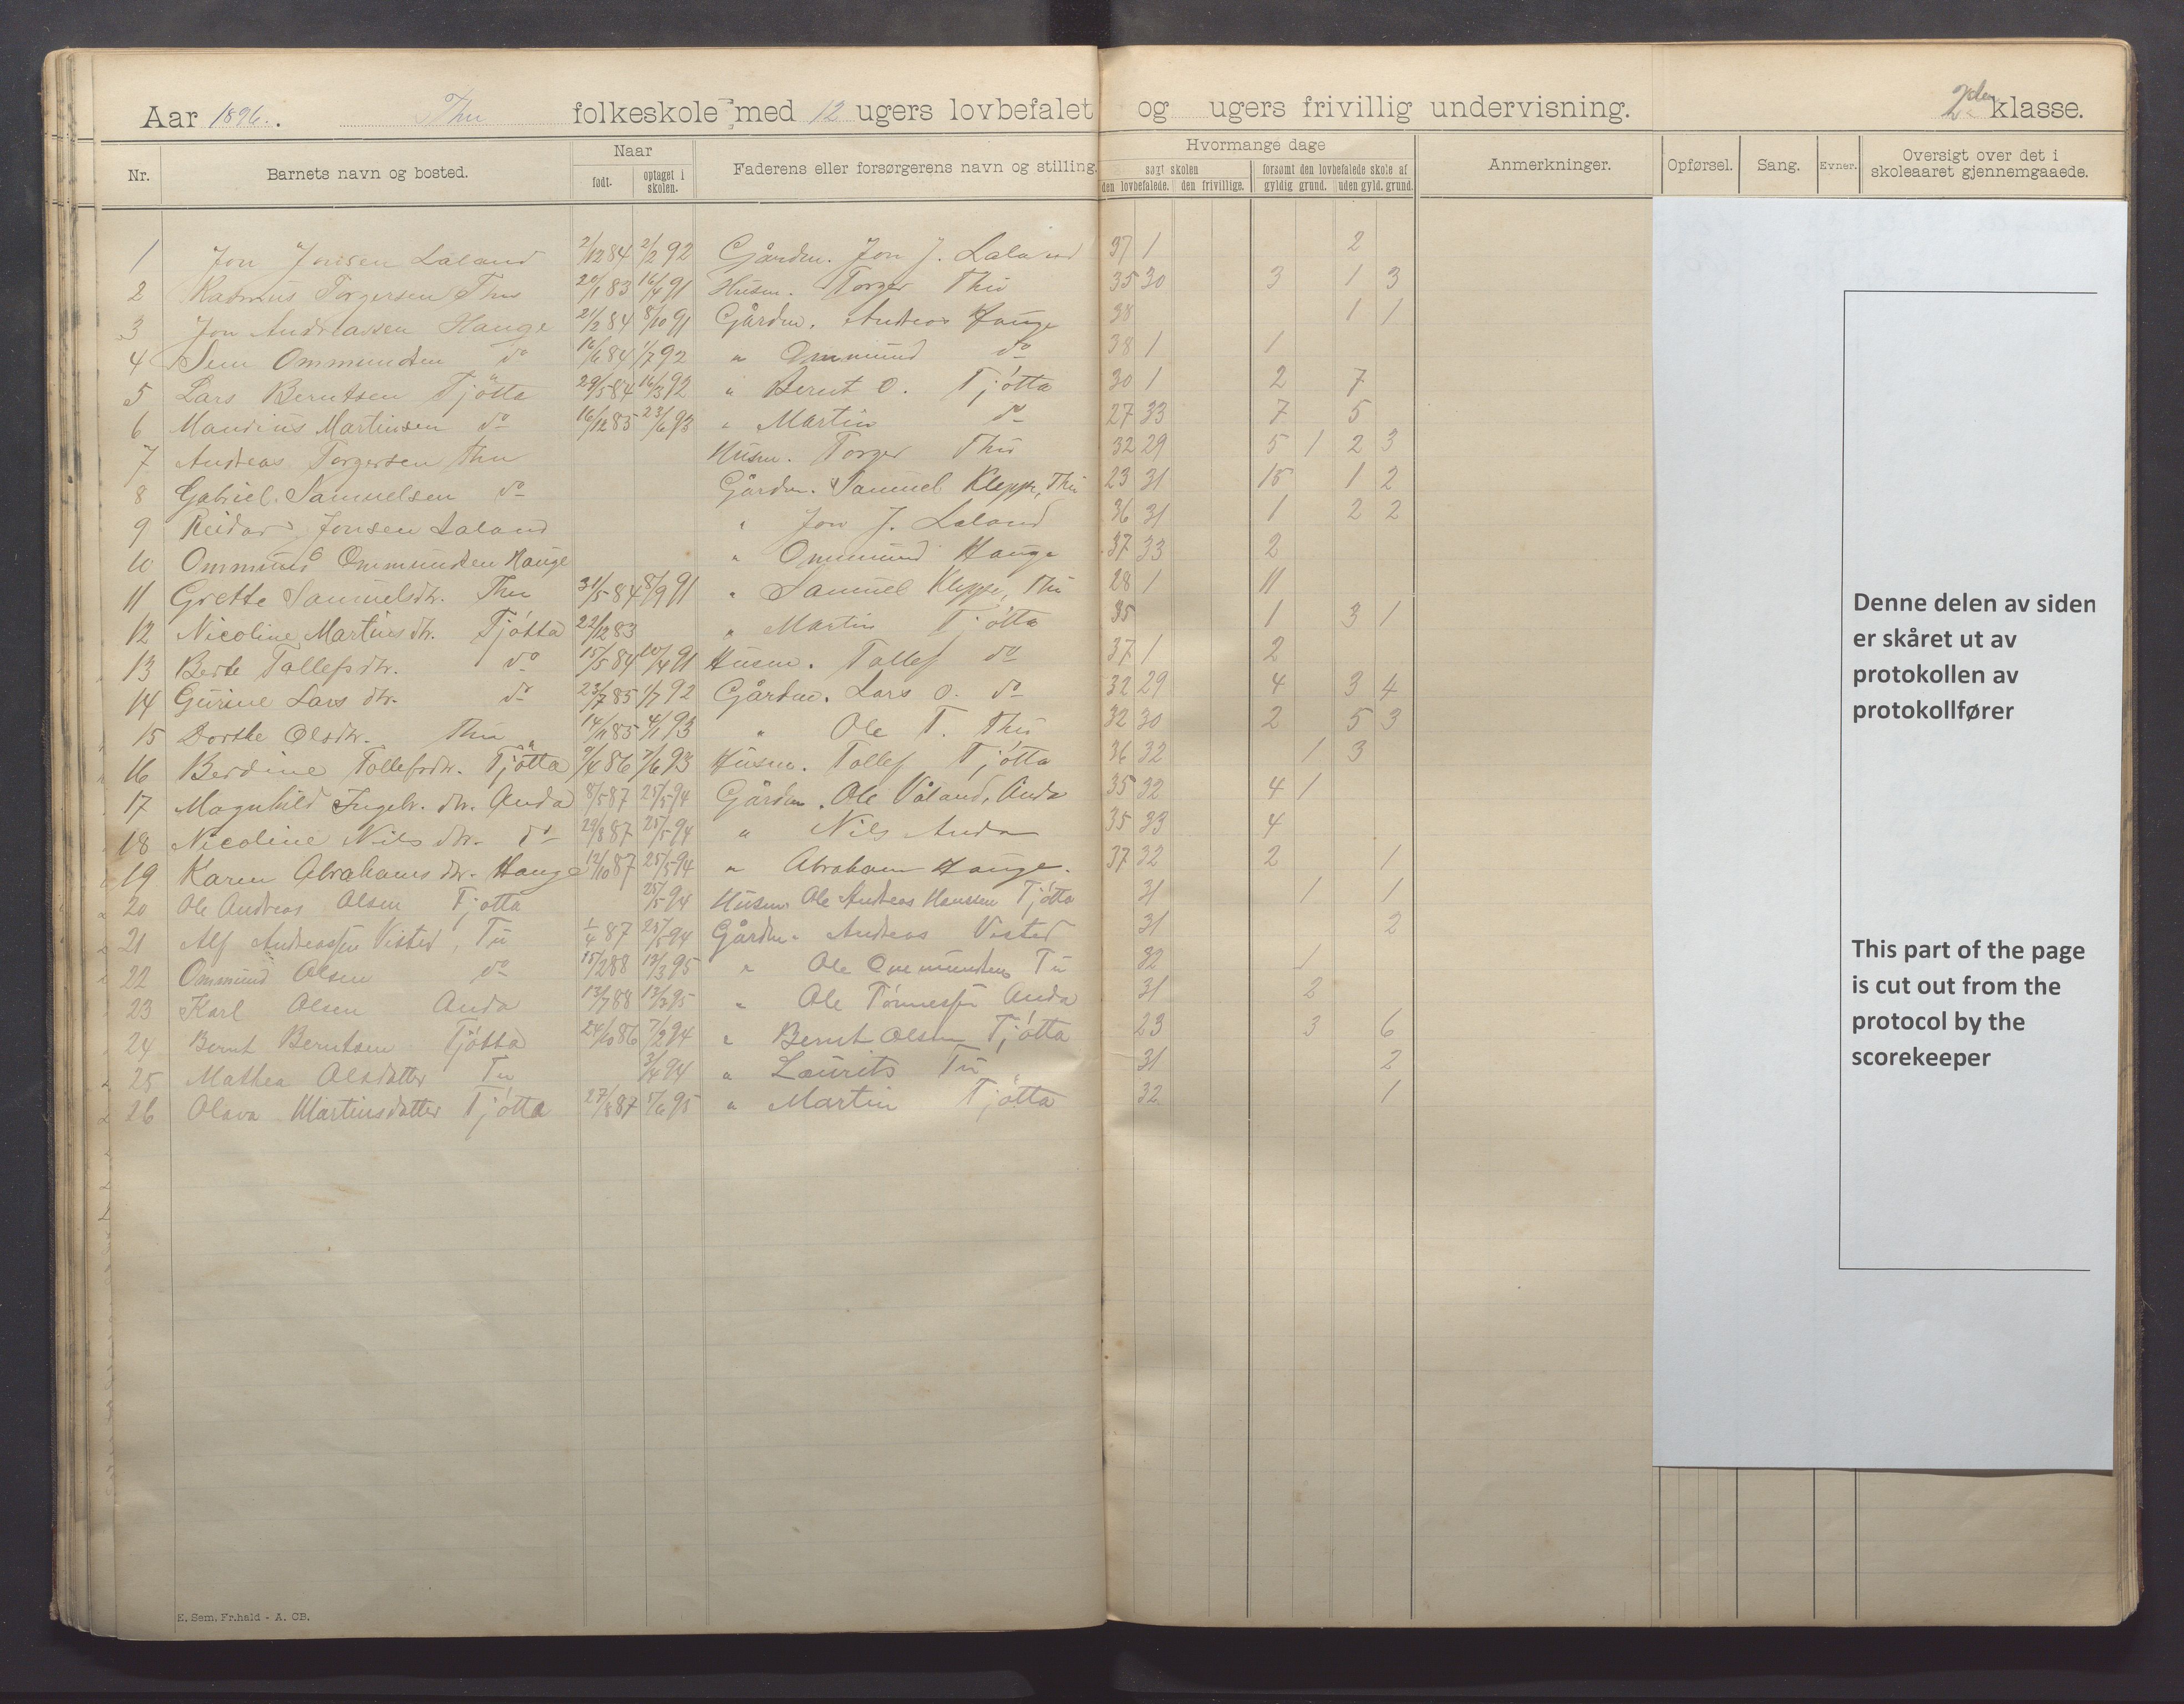 Aar 1896. Thu folkeskole med 12 ugers lovbefalet og ugers frivillig undervisning. 2den klasse.
Nr. Barnets navn og bosted. Naar født. optaget i skolen. Faderens eller forsørgerens navn og stilling. Hvormange dage søgt skolen den lovbefalede. den frivillige. forsømt den lovbefalede skole af gyldig grund. uden gyld. grund. Anmerkninger. Opførsel. Sang. Evner. Oversigt over det i skoleaaret gjennemgaaede.
1 Jon Jonsen Laland 2/12 84 2/2 92 Gårdm. Jon J. Laland 37 1 2
2 Rasmus Torgersen Thu 20/1 83 16/4 91 Husm. Torger Thu 35 30 3 1 3
3 Jon Andreassen Hauge 21/2 84 8/10 91 Gårdm. Andreas Hauge 38 1 1
4 Sem Ommundsen do 16/6 84 1/7 92 " Ommund do 38 1 1
5 Lars Berntsen Tjåtta 29/5 84 16/3 92 " Bernt O. Tjåtta 30 1 2 7
6 Maurius Martinsen do 16/12 85 23/6 93 " Martin do 27 33 7 5
7 Andreas Torgersen Thu Husm. Torger Thu 32 29 5 1 2 3
8 Gabriel Samuelsen do Gårdm. Samuel Kleppe, Thu 23 31 15 1 2
9 Reidar Jonsen Laland " Jon J. Laland 36 31 1 2 2
10 Ommund Ommundsen Hauge " Ommund Hauge 37 33 2
11 Grette Samuelsdtr. Thu 31/5 84 8/9 91 " Samuel Kleppe, Thu 28 1 11
12 Nicoline Martinsdtr. Tjåtta 22/12 83 " Martin Tjåtta 35 1 3 1
13 Berte Tollefsdtr. do 15/5 84 10/4 91 Husm. Tollef do 37 1 2
14 Gurine Lars dtr. do 23/7 85 1/7 92 Gårdm. Lars O. do 32 29 4 3 4
15 Dorthe Olsdtr. Thu 14/11 85 4/1 93 " Ole T. Thu 32 30 2 5 3
16 Berdine Tollefsdtr. Tjåtta 9/4 86 7/6 93 Husm. Tollef Tjåtta 36 32 1 3
17 Magnhild Ingebr. dtr. Anda 8/5 87 25/5 94 Gårdm. Ole Våland, Anda 35 32 4 1
18 Nicoline Nils dtr. do 29/8 87 25/5 94 " Nils Anda 35 33 4
19 Karen Abrahams dtr. Hauge 12/10 87 25/5 94 " Abraham Hauge. 37 32 2 1
20 Ole Andreas Olsen Tjøtta 25/5 94 Husm. Ole Andreas Hanssen Tjøtta 31 1 1
21 Alf Andreassen Visted, Tu 1/4 87 25/5 94 Gårdm. Andreas Visted 31 2
22 Ommund Olsen do 15/2 88 13/3 95 " Ole Ommundsen Tu 32 1
23 Karl Olsen Anda 13/7 88 13/3 95 " Ole Tønnessen Anda 31 2
24 Bernt Berntsen Tjøtta 24/10 86 7/2 94 " Bernt Olsen Tjøtta 23 3 6
25 Mathea Olsdatter Tu 3/4 94 " Laurits Tu 31 2
26 Olava Martinsdatter Tjøtta 27/8 87 1/6 95 " Martin Tjøtta 32 1
Denne delen av siden
er skåret ut av
protokollen av
protokollfører
This part of the page
is cut out from the
protocol by the
scorekeeper
E. Sem. Fr.hald - A. CB.